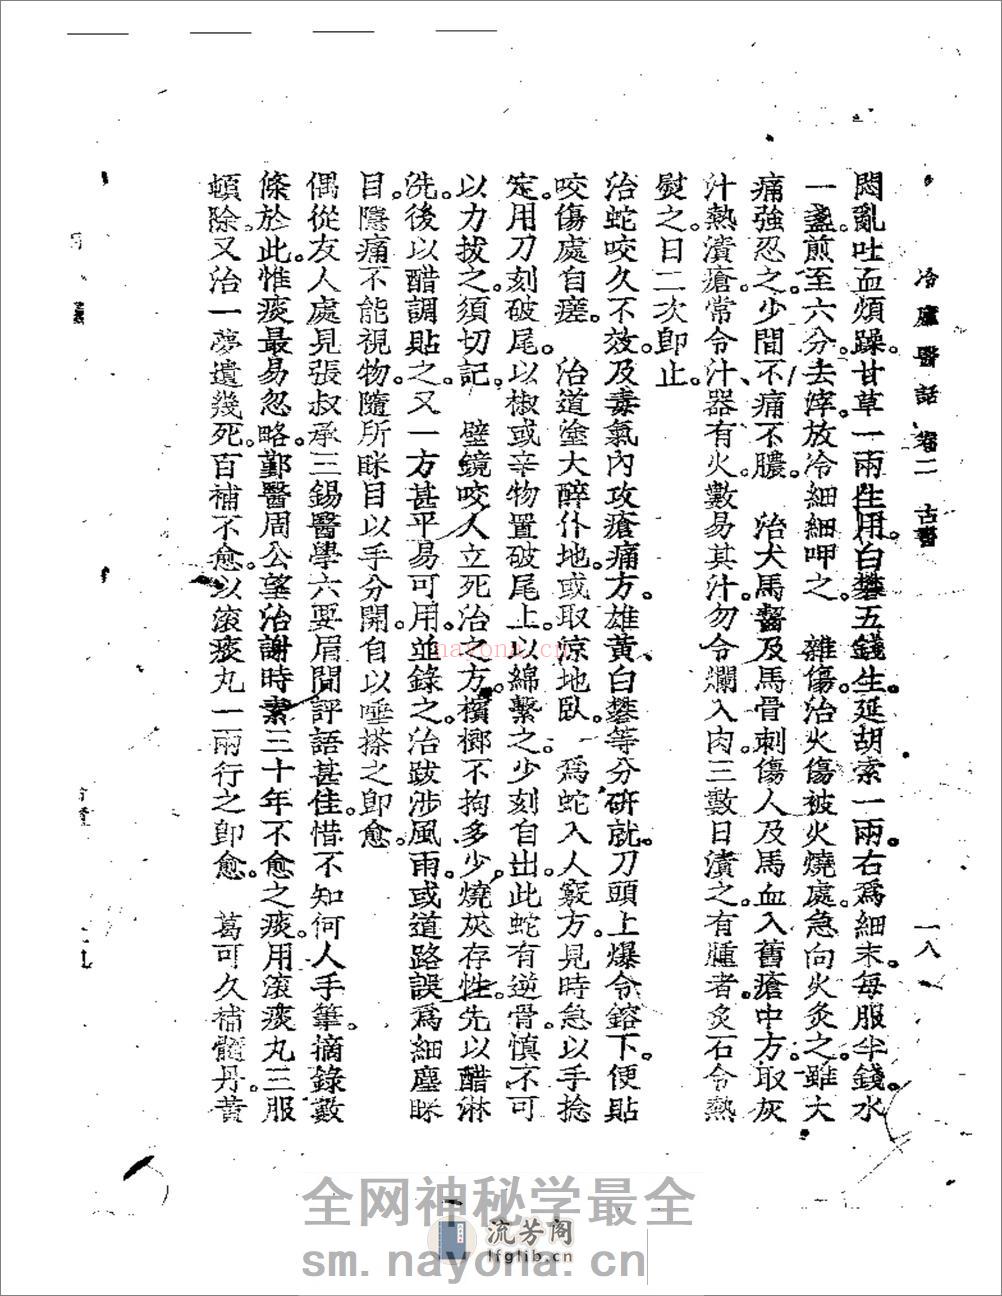 冷廬醫話　卷二　古書　一八
悶亂吐血煩躁。甘草一兩生用。白礬五錢生。延胡索一兩。右爲細末。每服半錢。水
一盞煎至六分。去滓放冷細細呷之。　雜傷。治火傷被火燒處。急向火灸之。雖大
痛強忍之。少間不痛不膿。　治犬馬齧及馬骨刺傷人及馬血入舊瘡中方。取灰
汁熱漬瘡。常令汁、器有火。數易其汁。勿令爛入肉。三數日漬之。有腫者。灸石令熱
熨之。日二次卽止。
治蛇咬久不效。及毒氣內攻瘡痛方。雄黃、白礬等分研就。刀頭上爆令鎔下。便貼
咬傷處自瘥。　治道塗大醉仆地。或取涼地臥。　爲蛇入人竅方。見時急以手捻
定。用刀刻破尾。以椒或辛物置破尾上。以綿繫之。少刻自出。此蛇有逆骨。慎不可
以力拔之。須切記。　壁鏡咬人立死。治之方。檳榔不拘多少。燒灰存性。先以醋淋
洗。後以醋調貼之。又一方甚平易可用。並錄之。治跋涉風雨。或道路誤爲細塵眯
目。隱痛不能視物。隨所眯目以手分開。自以唾搽之卽愈。
偶從友人處見張叔承三錫醫學六要。眉間評語甚佳。惜不知何人手筆。摘錄數
條於此。惟痰最易忽略。鄞醫周公望治謝時素三十年不愈之痰。用滾痰丸三服
頓除。又治一夢遺幾死。百補不愈。以滾痰丸一兩行之卽愈。　葛可久補髓丹。黃
nayona.cn
全网神秘学最全
流芳阁
lfglib.cn
sm.nayona.cn